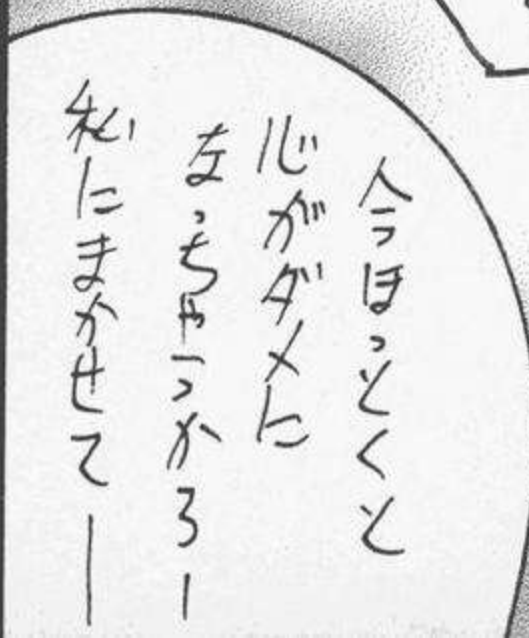 今ほっとくと
心がダメに
なっちゃうからー
私にまかせてー